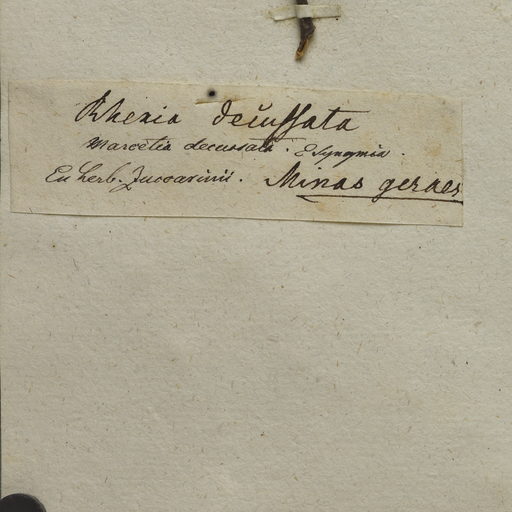 Rhexia decussata
Marcetia decussata. E Synymia.
Ex herb. Zuccarinii. Minas geraes